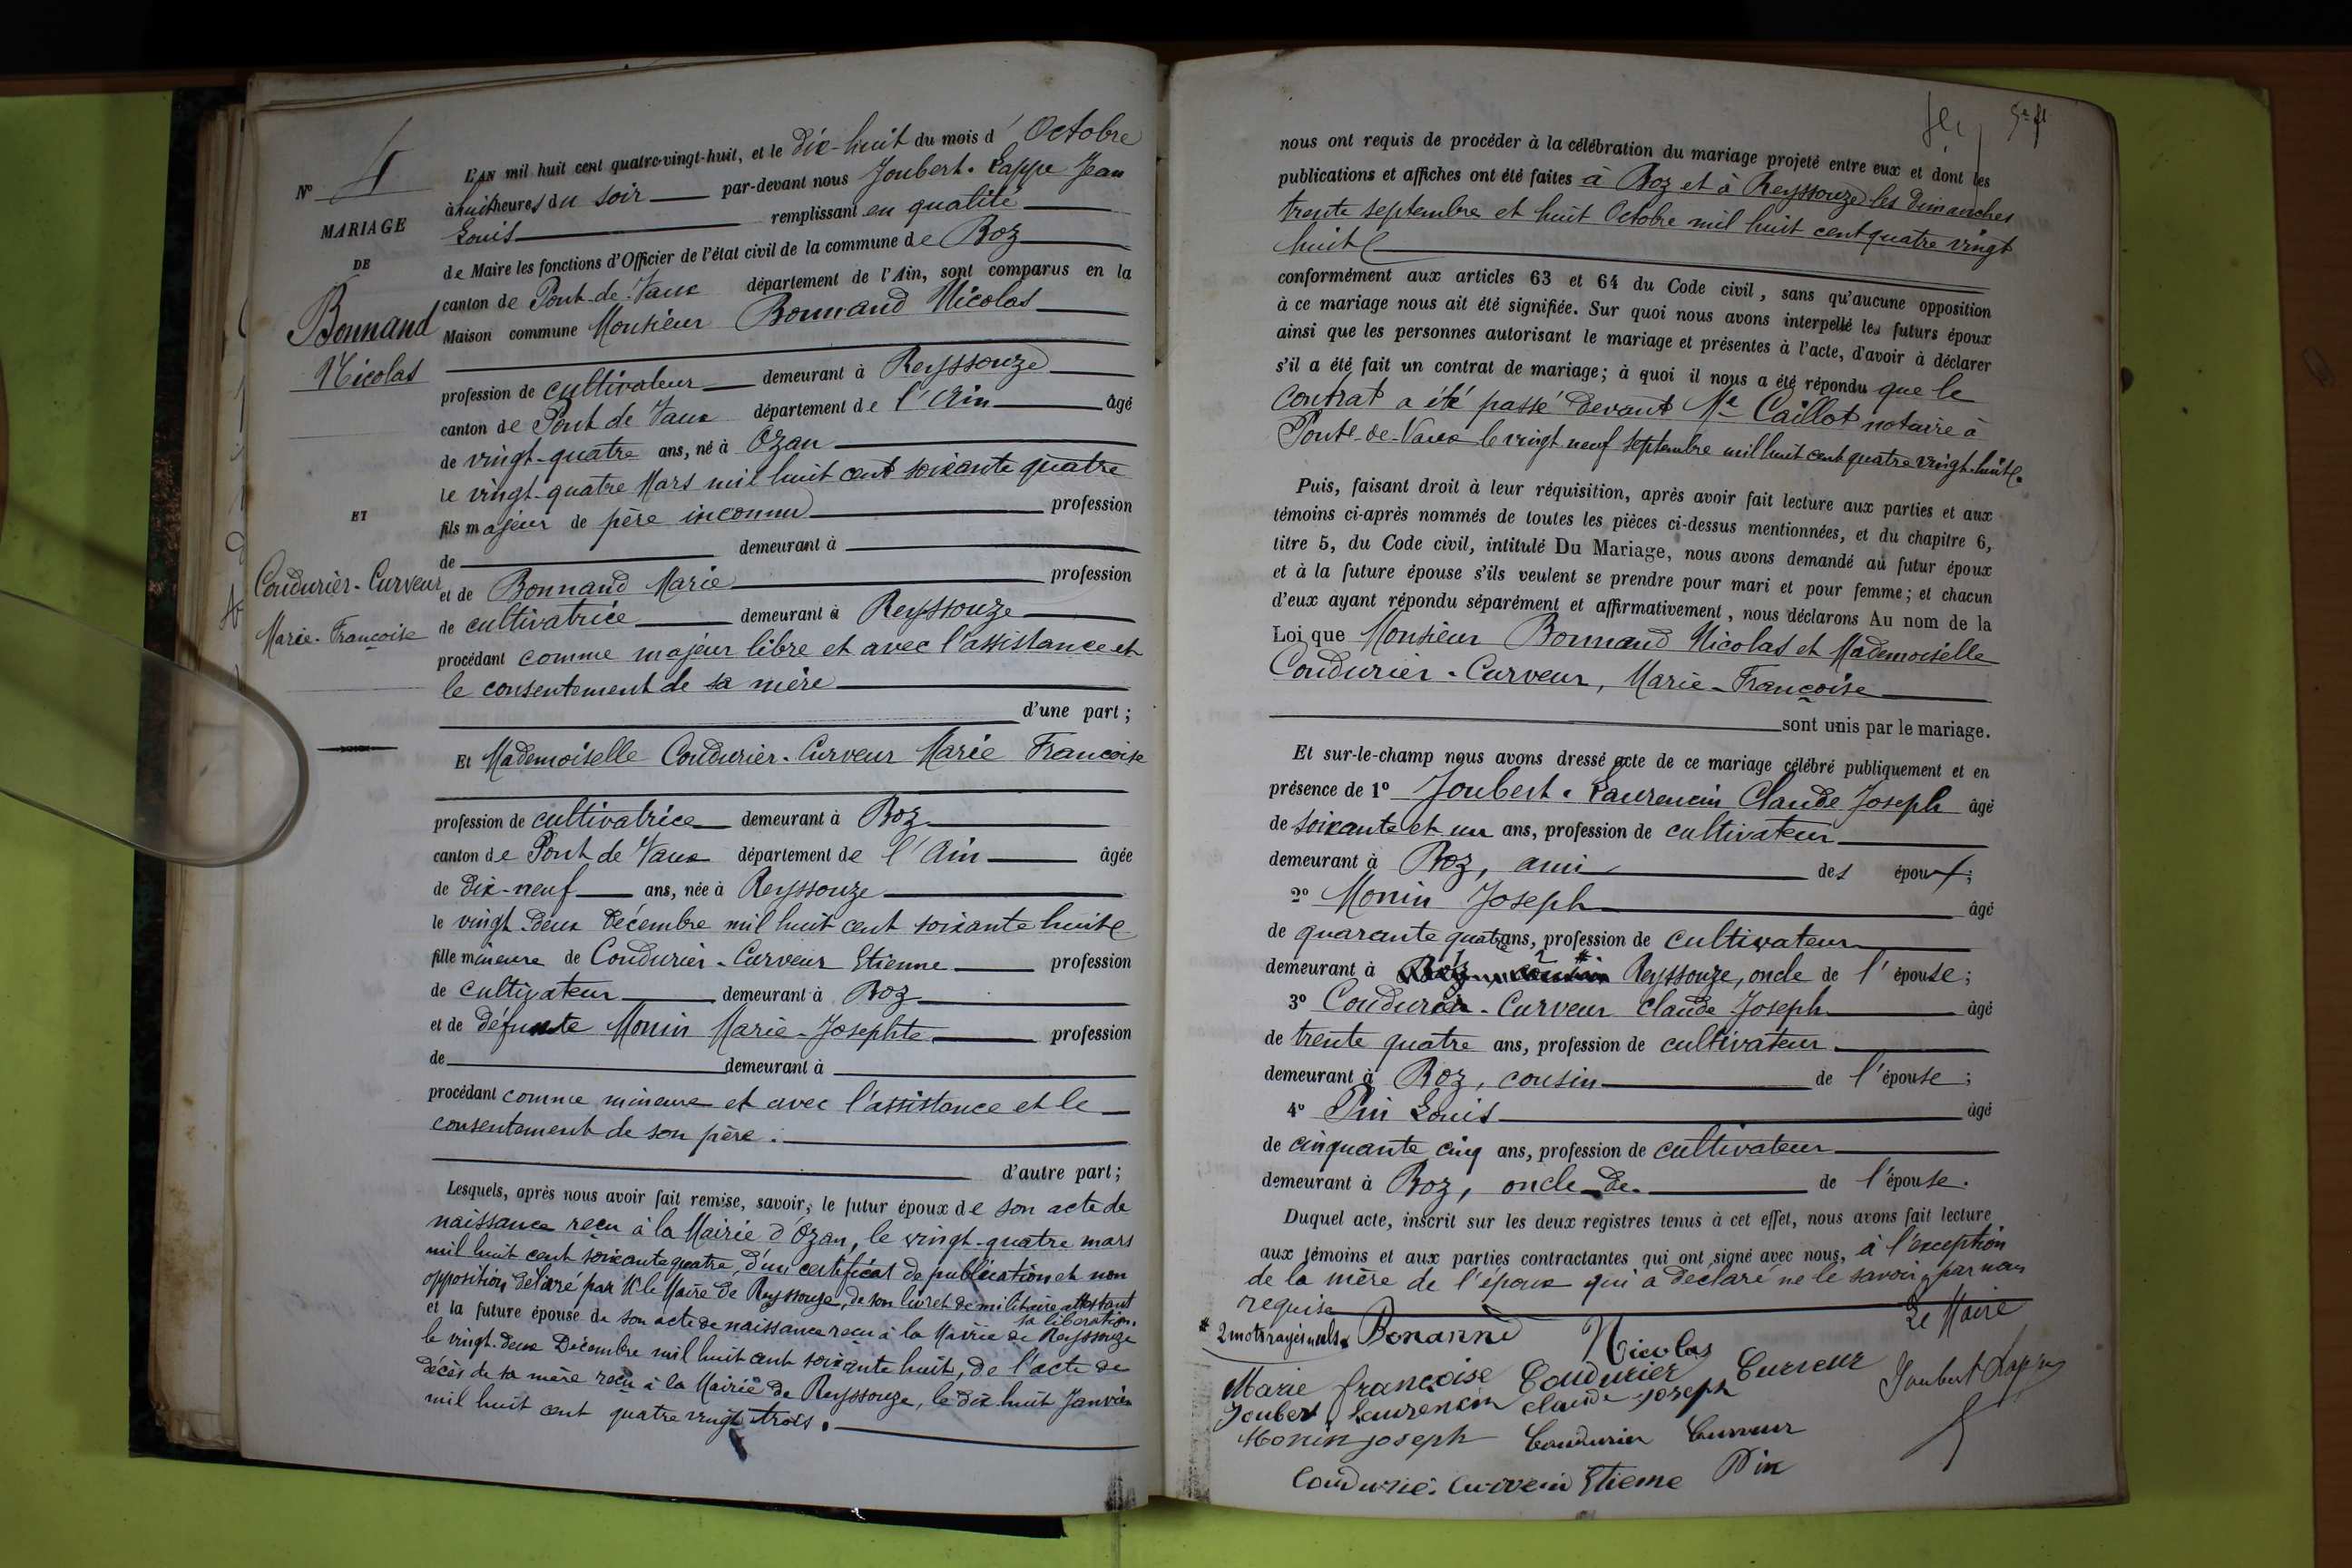 N° 4
MARIAGE
DE
Bonnand
Nicolas
ET
Coudurier-Curveur
Marie-Françoise
L'AN mil huit cent quatre-vingt-huit, et le dix-huit du mois d'Octobre
à huit heures du soir par-devant nous Joubert-Lappe Jean
Louis remplissant en qualité
de Maire les fonctions d'Officier de l'état civil de la commune de Boz
canton de Pont-de-Vaux département de l'Ain, sont comparus en la
Maison commune Monsieur Bonnand Nicolas
profession de cultivateur demeurant à Reyssouze
canton de Pont de Vaux département de l'Ain âgé
de vingt-quatre ans, né à Ozan
le vingt-quatre Mars mil huit cent soixante quatre
fils majeur de père inconnu profession
de demeurant à
et de Bonnand Marie profession
de cultivatrice demeurant à Reyssouze
procédant comme majeur libre et avec l'assistance et
le consentement de sa mère
d'une part ;
Et Mademoiselle Coudurier-Curveur Marie Françoise
profession de cultivatrice demeurant à Boz
canton de Pont de Vaux département de l'Ain âgée
de dix-neuf ans, née à Reyssouze
le vingt-deux Décembre mil huit cent soixante huit
fille mineure de Coudurier-Curveur Etienne profession
de cultivateur demeurant à Boz
et de défunte Monin Marie-Josephte profession
de demeurant à
procédant comme mineure et avec l'assistance et le
consentement de son père.
d'autre part ;
Lesquels, après nous avoir fait remise, savoir; le futur époux de son acte de
naissance reçu à la Mairie d'Ozan, le vingt-quatre mars
mil huit cent soixante quatre, d'un certificat de publication et non
opposition délivré par Mr le Maire de Reyssouze, de son livret de militaire attestant
sa libération.
et la future épouse de son acte de naissance reçu à la Mairie de Reyssouze
le vingt-deux Décembre mil huit cent soixante huit, de l'acte de
décès de sa mère reçu à la Mairie de Reyssouze, le dix huit Janvier
mil huit cent quatre vingt trois.
nous ont requis de procéder à la célébration du mariage projeté entre eux et dont les
publications et affiches ont été faites à Boz et à Reyssouze les dimanches
trente septembre et huit Octobre mil huit cent quatre vingt
huit
conformément aux articles 63 et 64 du Code civil, sans qu'aucune opposition
à ce mariage nous ait été signifiée. Sur quoi nous avons interpellé les futurs époux
ainsi que les personnes autorisant le mariage et présentes à l'acte, d'avoir à déclarer
s'il a été fait un contrat de mariage; à quoi il nous a été répondu que le
contrat a été passé devant Me Caillot notaire à
Pont-de-Vaux le vingt neuf septembre mil huit cent quatre vingt-huit.
Puis, faisant droit à leur réquisition, après avoir fait lecture aux parties et aux
témoins ci-après nommés de toutes les pièces ci-dessus mentionnées, et du chapitre 6,
titre 5, du Code civil, intitulé Du Mariage, nous avons demandé au futur époux
et à la future épouse s'ils veulent se prendre pour mari et pour femme; et chacun
d'eux ayant répondu séparément et affirmativement, nous déclarons Au nom de la
Loi que Monsieur Bonnand Nicolas et Mademoiselle
Coudurier-Curveur, Marie-Françoise
sont unis par le mariage.
Et sur-le-champ nous avons dressé acte de ce mariage célébré publiquement et en
présence de 1° Joubert-Laurencin Claude Joseph âgé
de soixante et un ans, profession de cultivateur
demeurant à Boz, ami des époux;
2° Monin Joseph âgé
de quarante quatre ans, profession de cultivateur
demeurant à Boz, cousin Reyssouze, oncle de l'épouse;
3° Coudurier-Curveur Claude Joseph âgé
de trente quatre ans, profession de cultivateur
demeurant à Boz, cousin de l'épouse;
4° Pin Louis âgé
de cinquante cinq ans, profession de cultivateur
demeurant à Boz, oncle de de l'épouse.
Duquel acte, inscrit sur les deux registres tenus à cet effet, nous avons fait lecture
aux témoins et aux parties contractantes qui ont signé avec nous, à l'exception
de la mère de l'époux qui a déclaré ne le savoir, par nous
requise
* 2 mots rayés nuls. Bonanné Nicolas Le Maire
Marie françoise Coudurier Curveur Joubert Lappe
Joubert Laurencin Claude joseph
Monin joseph Coudurier Curveur
Coudurié-Curveur Etiene Pin